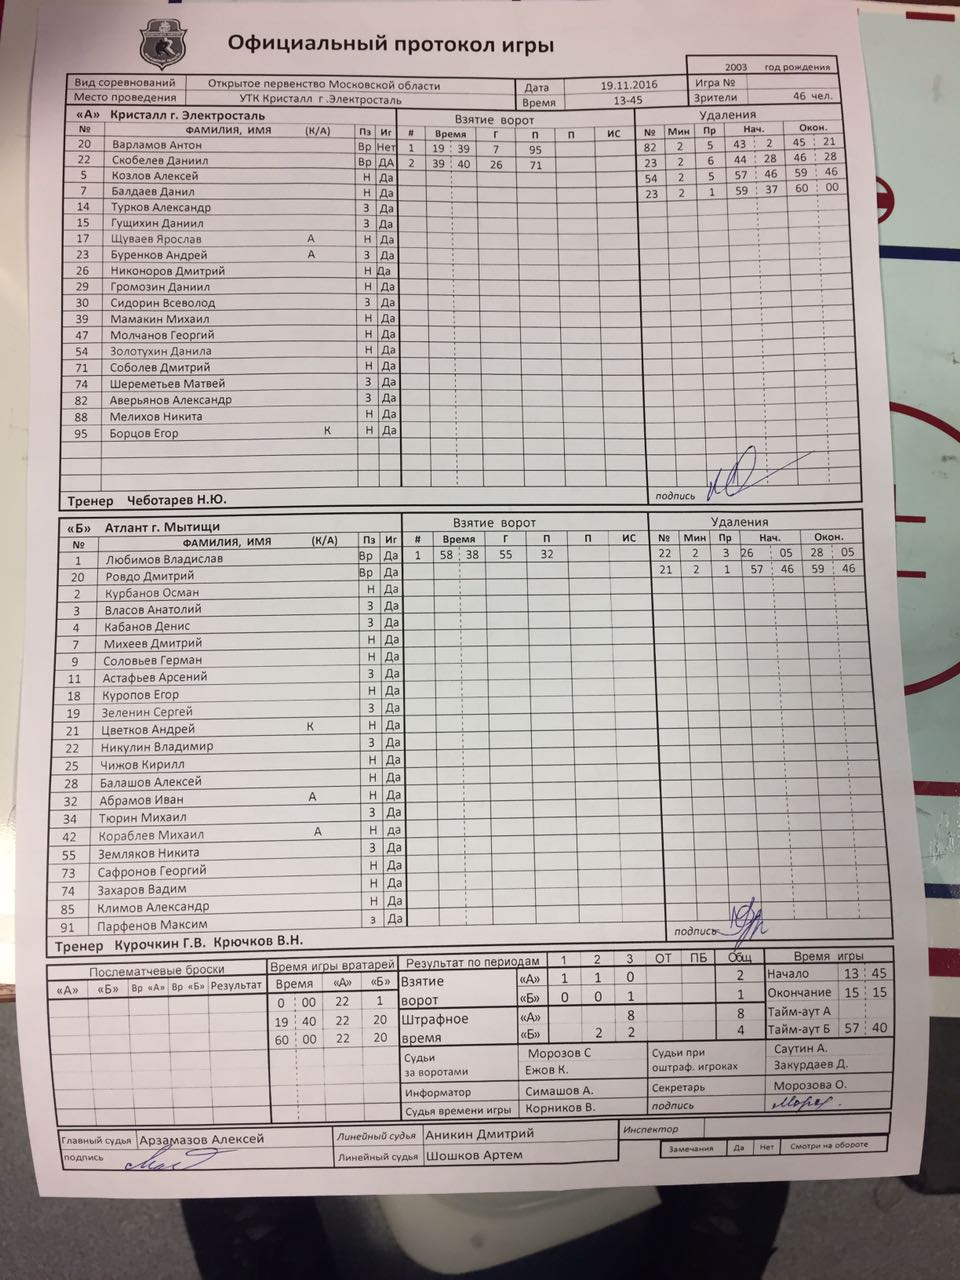 Официальный протокол игры
2003 год рождения
Вид соревнований Открытое первенство Московской области Дата 19.11.2016 Игра №
Место проведения УТК Кристалл г .Электросталь Время 13-45 Зрители 46 чел.
«А» Кристалл г. Электросталь Взятие ворот Удаления
№ ФАМИЛИЯ, ИМЯ (К/А) Пз Иг # Время Г П П ИС № Мин Пр Нач. Окон.
20 Варламов Антон Вр Нет 1 19 : 39 7 95 82 2 5 43 : 2 45 : 21
22 Скобелев Даниил Вр ДА 2 39 : 40 26 71 23 2 6 44 : 28 46 : 28
5 Козлов Алексей Н Да 54 2 5 57 : 46 59 : 46
7 Балдаев Данил Н Да 23 2 1 59 : 37 60 : 00
14 Турков Александр З Да
15 Гущихин Даниил З Да
17 Щуваев Ярослав А Н Да
23 Буренков Андрей А З Да
26 Никоноров Дмитрий Н Да
29 Громозин Даниил Н Да
30 Сидорин Всеволод З Да
39 Мамакин Михаил Н Да
47 Молчанов Георгий Н Да
54 Золотухин Данила Н Да
71 Соболев Дмитрий Н Да
74 Шереметьев Матвей З Да
82 Аверьянов Александр З Да
88 Мелихов Никита Н Да
95 Борцов Егор К Н Да
Тренер Чеботарев Н.Ю. подпись
«Б» Атлант г. Мытищи Взятие ворот Удаления
№ ФАМИЛИЯ, ИМЯ (К/А) Пз Иг # Время Г П П ИС № Мин Пр Нач. Окон.
1 Любимов Владислав Вр Да 1 58 : 38 55 32 22 2 3 26 : 05 28 : 05
20 Ровдо Дмитрий Вр Да 21 2 1 57 : 46 59 : 46
2 Курбанов Осман Н Да
3 Власов Анатолий З Да
4 Кабанов Денис З Да
7 Михеев Дмитрий Н Да
9 Соловьев Герман Н Да
11 Астафьев Арсений З Да
18 Куропов Егор Н Да
19 Зеленин Сергей З Да
21 Цветков Андрей К Н Да
22 Никулин Владимир З Да
25 Чижов Кирилл Н Да
28 Балашов Алексей Н Да
32 Абрамов Иван А Н Да
34 Тюрин Михаил З Да
42 Кораблев Михаил А Н да
55 Земляков Никита З Да
73 Сафронов Георгий Н Да
74 Захаров Вадим Н Да
85 Климов Александр Н Да
91 Парфенов Максим з Да
Тренер Курочкин Г.В. Крючков В.Н. подпись
Послематчевые броски Время игры вратарей Результат по периодам 1 2 3 ОТ ПБ Общ Время игры
«А» «Б» Вр «А» Вр «Б» Результат Время «А» «Б» Взятие ворот «А» 1 1 0 2 Начало 13 : 45
0 : 00 22 1 «Б» 0 0 1 1 Окончание 15 : 15
19 : 40 22 20 Штрафное время «А» 8 8 Тайм-аут А
60 : 00 22 20 «Б» 2 2 4 Тайм-аут Б 57 : 40
Судьи за воротами Морозов С Ежов К. Судьи при оштраф. игроках Саутин А. Закурдаев Д.
Информатор Симашов А. Секретарь Морозова О.
Судья времени игры Корников В. подпись
Главный судья Арзамазов Алексей Линейный судья Аникин Дмитрий Инспектор
подпись Линейный судья Шошков Артем Замечания Да Нет Смотри на обороте